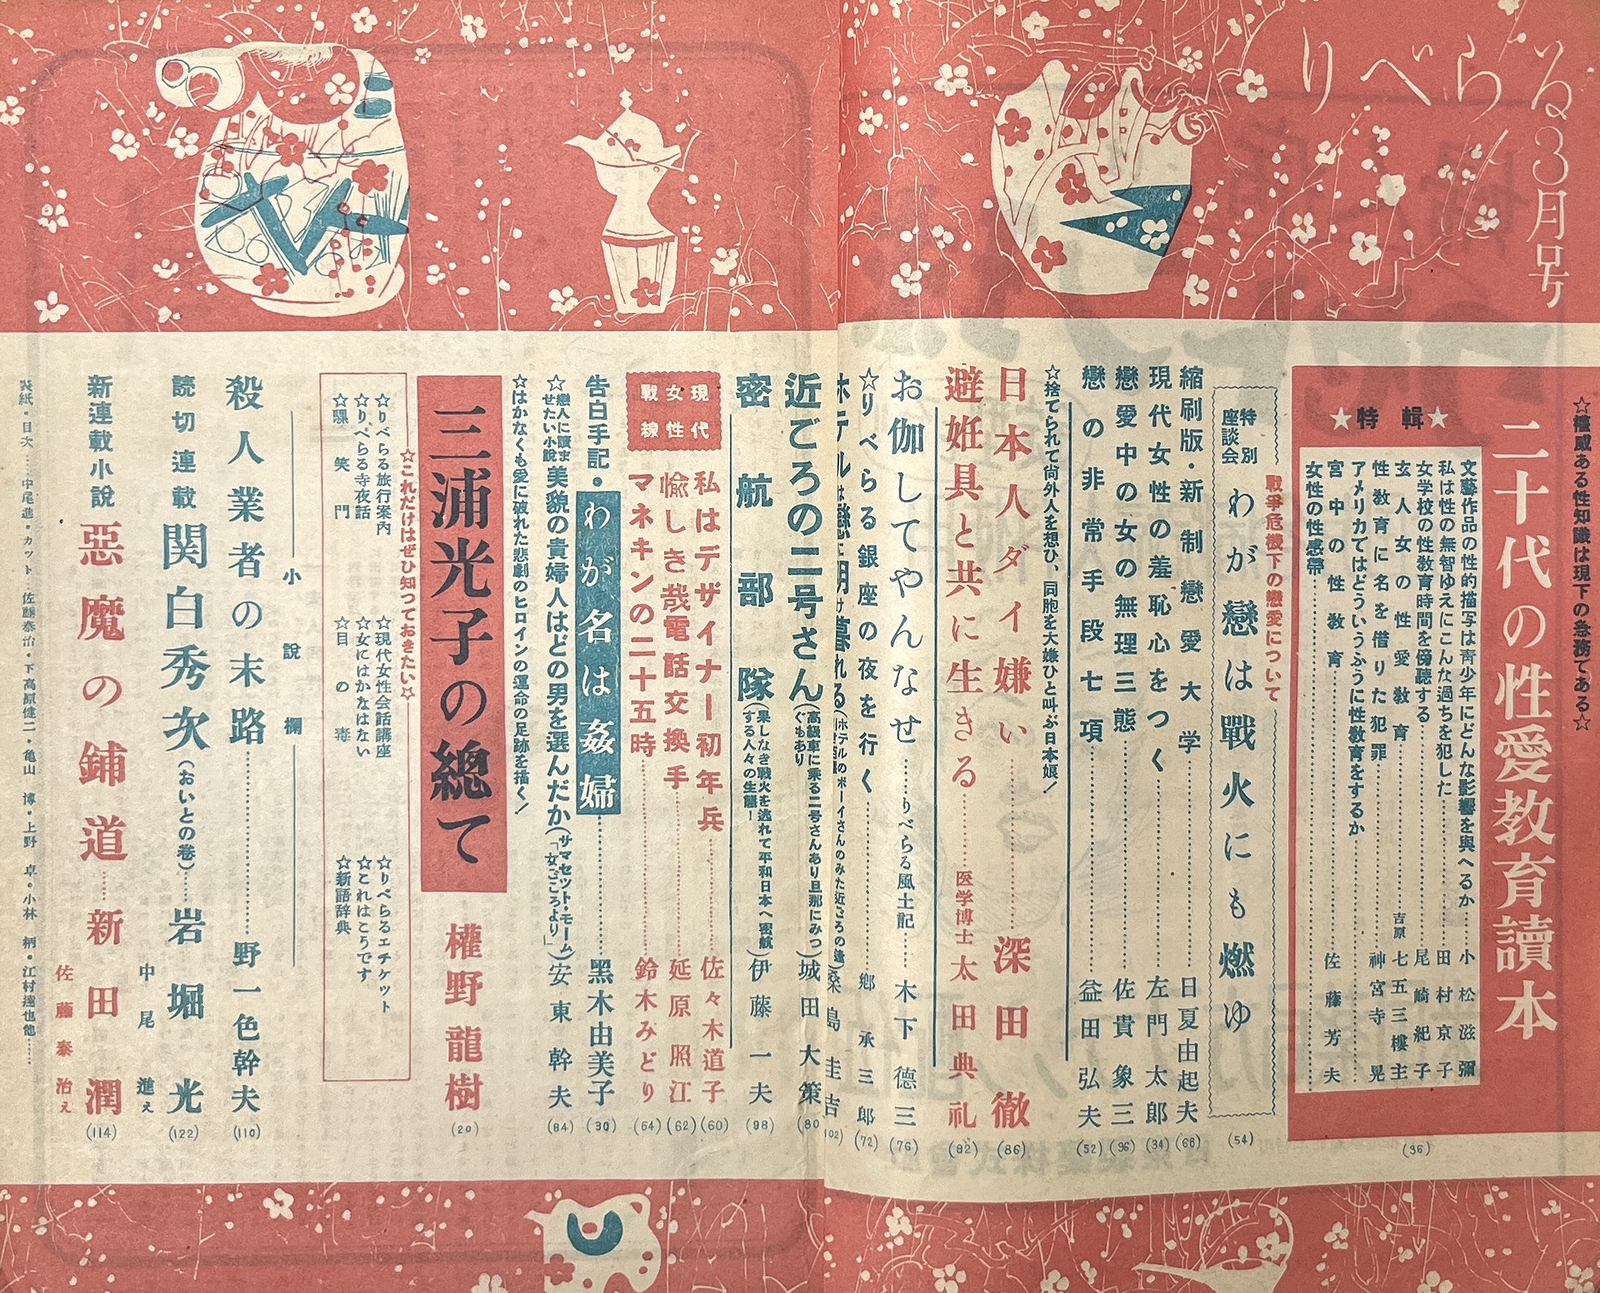 りべらる3月号
☆権威ある性知識は現下の急務である☆
二十代の性愛教育讀本
★特輯★
文藝作品の性的描写は靑少年にどんな影響を與へるか……小松滋彌
私は性の無智ゆえにこんな過ちを犯した……田村京子
女学校の性教育時間を傍聽する……尾崎紀子
玄人女の性愛教育……吉原 七五三樓主
性教育に名を借りた犯罪……神宮寺晃
アメリカではどういうふうに性教育をするか
宮中の性教育……佐藤芳夫
女性の性感帶……
(36)
戰爭危機下の戀愛について
特別座談会 わが戀は戰火にも燃ゆ (54)
縮刷版・新制戀愛大学……日夏由起夫 (66)
現代女性の羞恥心をつく……左門太郎 (34)
戀愛中の女の無理三態……佐貴象三 (96)
戀の非常手段七項……益田弘夫 (52)
☆捨てられて尚外人を想ひ、同胞を大嫌ひと叫ぶ日本娘!
日本人ダイ嫌い……深田徹 (86)
避姙具と共に生きる……医学博士 太田典礼 (92)
お伽してやんなせ……りべらる風土記……木下徳三 (76)
☆りべらる銀座の夜を行く……鄕承三郎 (72)
近ごろの二号さん(高級車に乘る二号さんあり旦那にみつぐもあり)城田大策 (80
密航部隊(果しなき戦火を逃れて平和日本へ密航する人々の生態!)伊藤一夫 (98)
現代女性戰線
私はデザイナー初年兵……佐々木道子 (60)
愉しき哉電話交換手……延原照江 (62)
マネキンの二十五時……鈴木みどり (64)
告白手記・わが名は姦婦……黒木由美子 (30)
☆戀人に讀ませたい小說 美貌の貴婦人はどの男を選んだか(サマセット・モーム「女ごころより」)安東幹夫 (84)
☆はかなくも愛に破れた悲劇のヒロインの運命の足跡を描く!
三浦光子の總て 權野龍樹 (20)
☆これだけはぜひ知っておきたい☆
☆りべらる旅行案内
☆現代女性会話講座
☆りべらるエチケット
☆りべらる寺夜話
☆女にはかなはない
☆これはこうです
☆騍笑門
☆目の毒
☆新語辞典
小說欄
殺人業者の末路……野一色幹夫 (110)
読切連載 関白秀次(おいとの巻)……岩堀光 (122)
中尾進え
新連載小說 惡魔の鋪道……新田潤 (114)
佐藤泰治え
表紙・目次……中尾進・カット…佐藤泰治・下高原健二・亀山博・上野卓・小林柄・江村達也他……